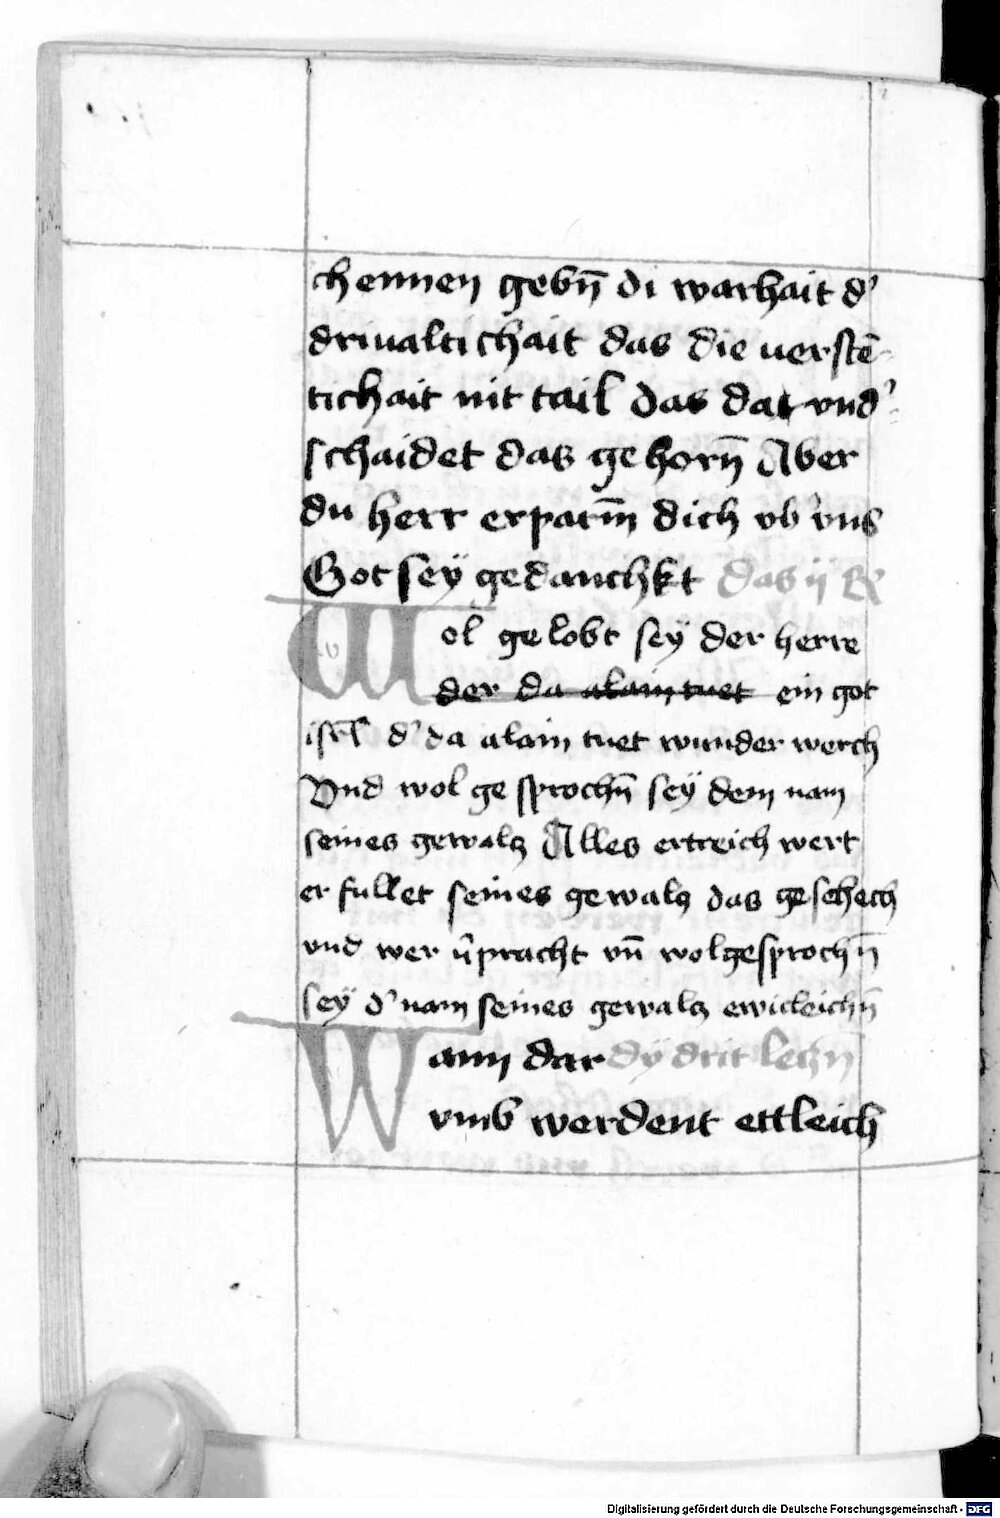 chennen gebn̄ di warhait d'
driualtichait das die uerstē-
tichait nit tail das dat vnd'
schaidet das gehorn̄ Aber
du herr erparm̄ dich vb' vns
Got sey̆ gedanchkt das ij R
Wol gelobt sey̆ der herre
der da alain tuet ein got
isrl̄ d' da alain tuet wunder werch
Vnd wol gesprochn̄ sey̆ dem nam
seines gewalcz Alles ertreich wert
erfullet seines gewalcz das geschech
vnd wer v̄pracht vn̄ wolgesprochn̄
sey̆ d' nam seines gewalcz ewicleichn̄
Wann dar dy̆ drit leczn
vmb werdent ettleich
Digitalisierung gefördert durch die Deutsche Forschungsgemeinschaft - DFG